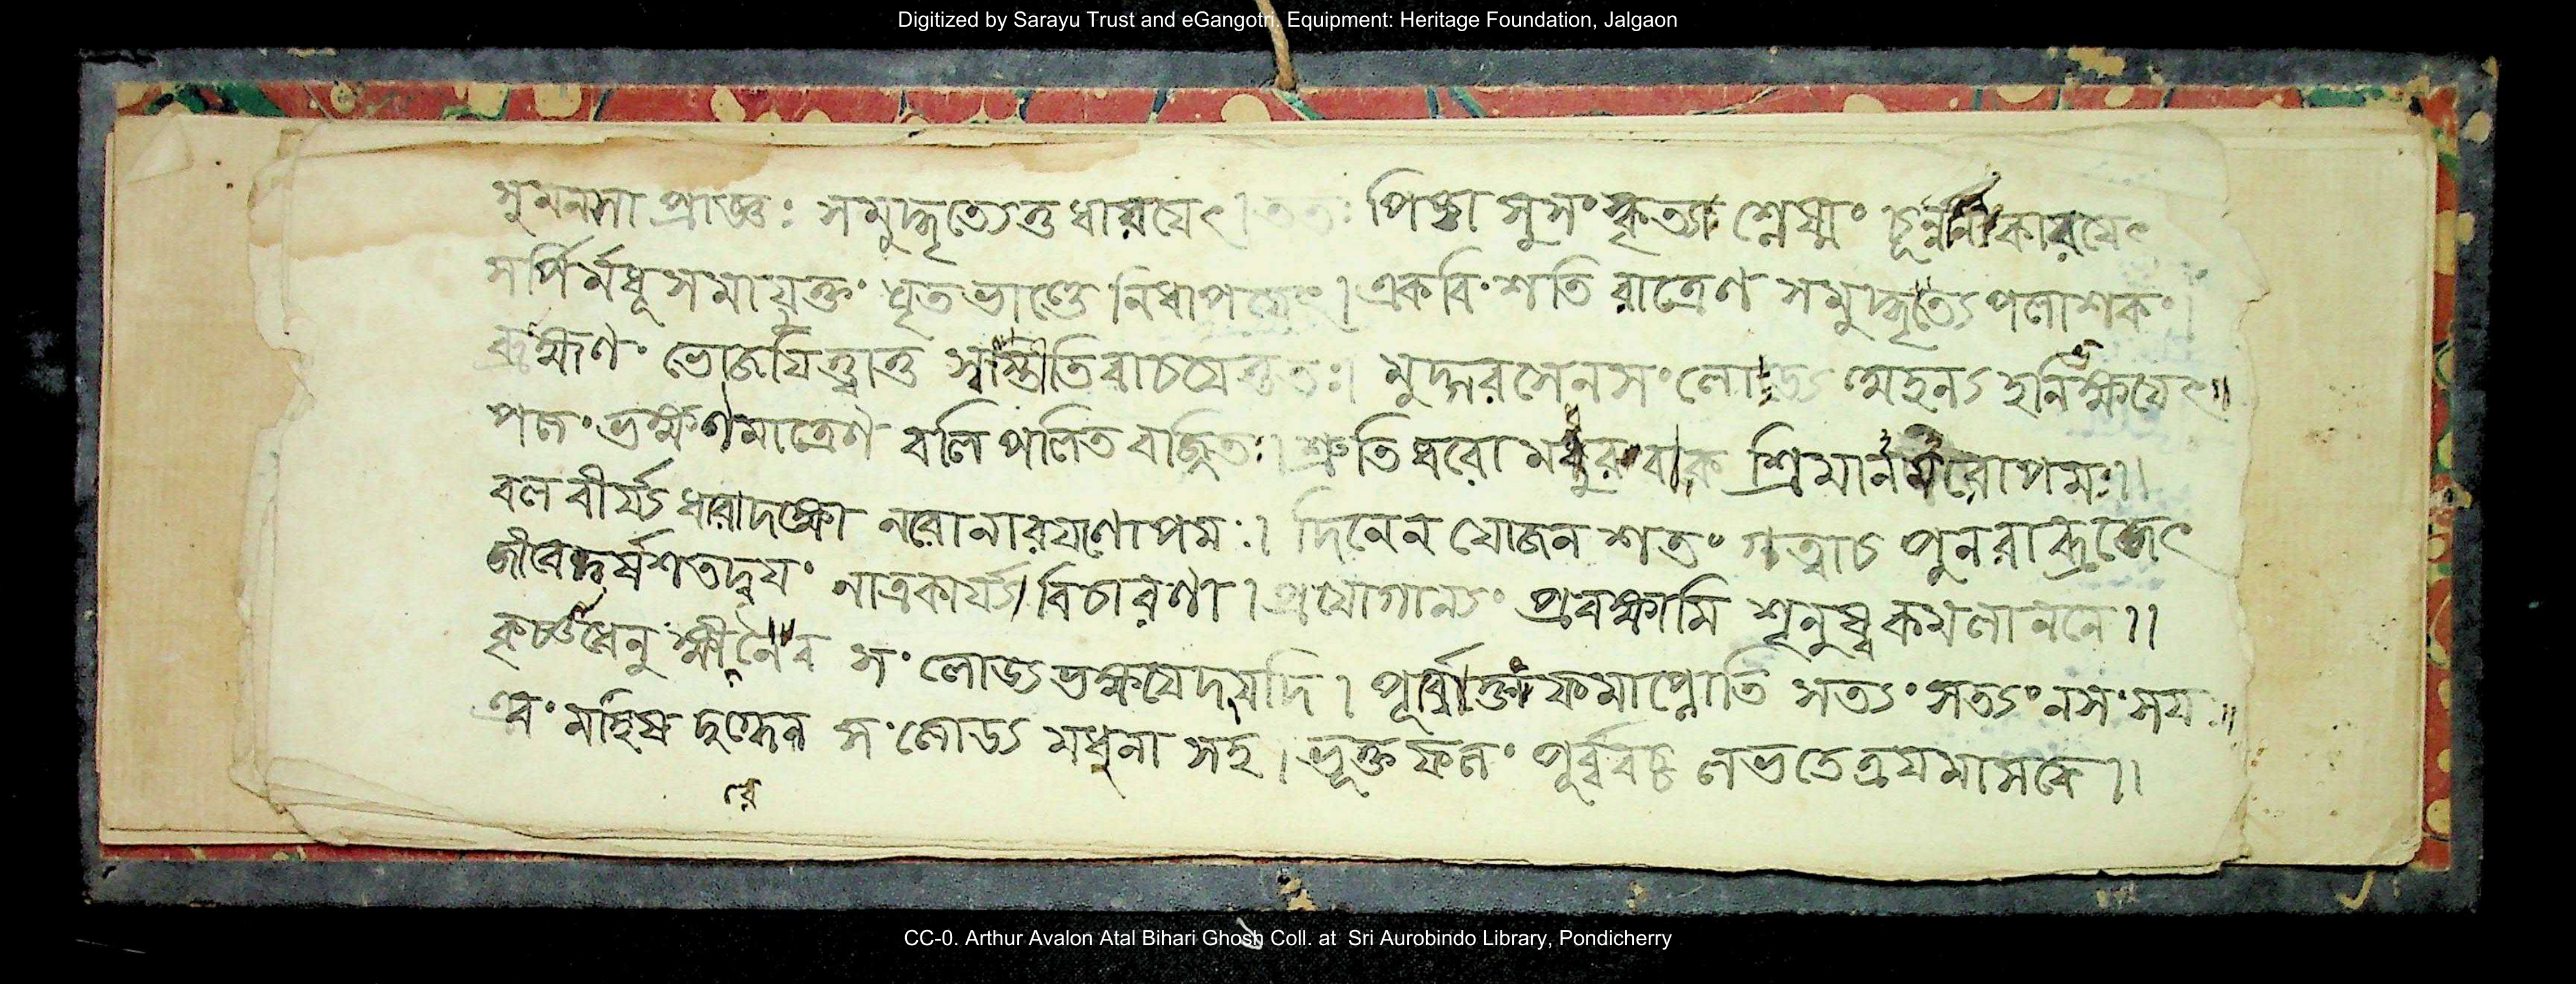 Digitized by Sarayu Trust and eGangotri. Equipment: Heritage Foundation, Jalgaon
সুমনসা প্রাজ্ঞঃ সমুদ্ধৃত্যেত্তু ধারযেৎ। ততঃ পিষ্ট্বা সুসংস্কৃত্যা শ্লেষ্মং চূর্ন্ন কারযেৎ
সর্পির্মধূসমাযুক্তং ধৃতভাণ্ডে নিধাপযেৎ। একবিংশতি রাত্রেণ সমুদ্ধৃত্য পলাশকং।
ব্রাহ্মণং ভোজযিত্ত্বাত্তু স্বস্তীতিবাচযেত্ততঃ। মুদ্গরসেনসং লোড্য
পলংভক্ষণমাত্রেণ বলি পলিত বর্জিতঃ। শ্রুতি ধরো মধুর বাক শ্রিমান মরোপমঃ।।
বল বীর্য্য ধরাদক্ষো নরোনারযণোপমঃ। দিনেন যোজন শতং গত্বাচ পুনরাব্রজেৎ
জীবেদ্বর্ষশতদ্বযং নাত্রকার্য্য বিচারণা। প্রযোগান্যং প্রবক্ষামি শৃনুষ্ব কমলাননে।।
ধেনু ক্ষীরেনৈব সংলোড্য ভক্ষযেদ্যদি। পূর্ব্বোক্তং ফমাপ্নোতি সত্যং সত্যং নসংসযঃ॥
এবং মহিষ দুগ্ধেন সংলোড্য মধুনা সহ। ভূক্ত ফলং পুর্ব্ববচ্চ লভতেত্রযমাসকে।।
রে
CC-0. Arthur Avalon Atal Bihari Ghosh Coll. at Sri Aurobindo Library, Pondicherry